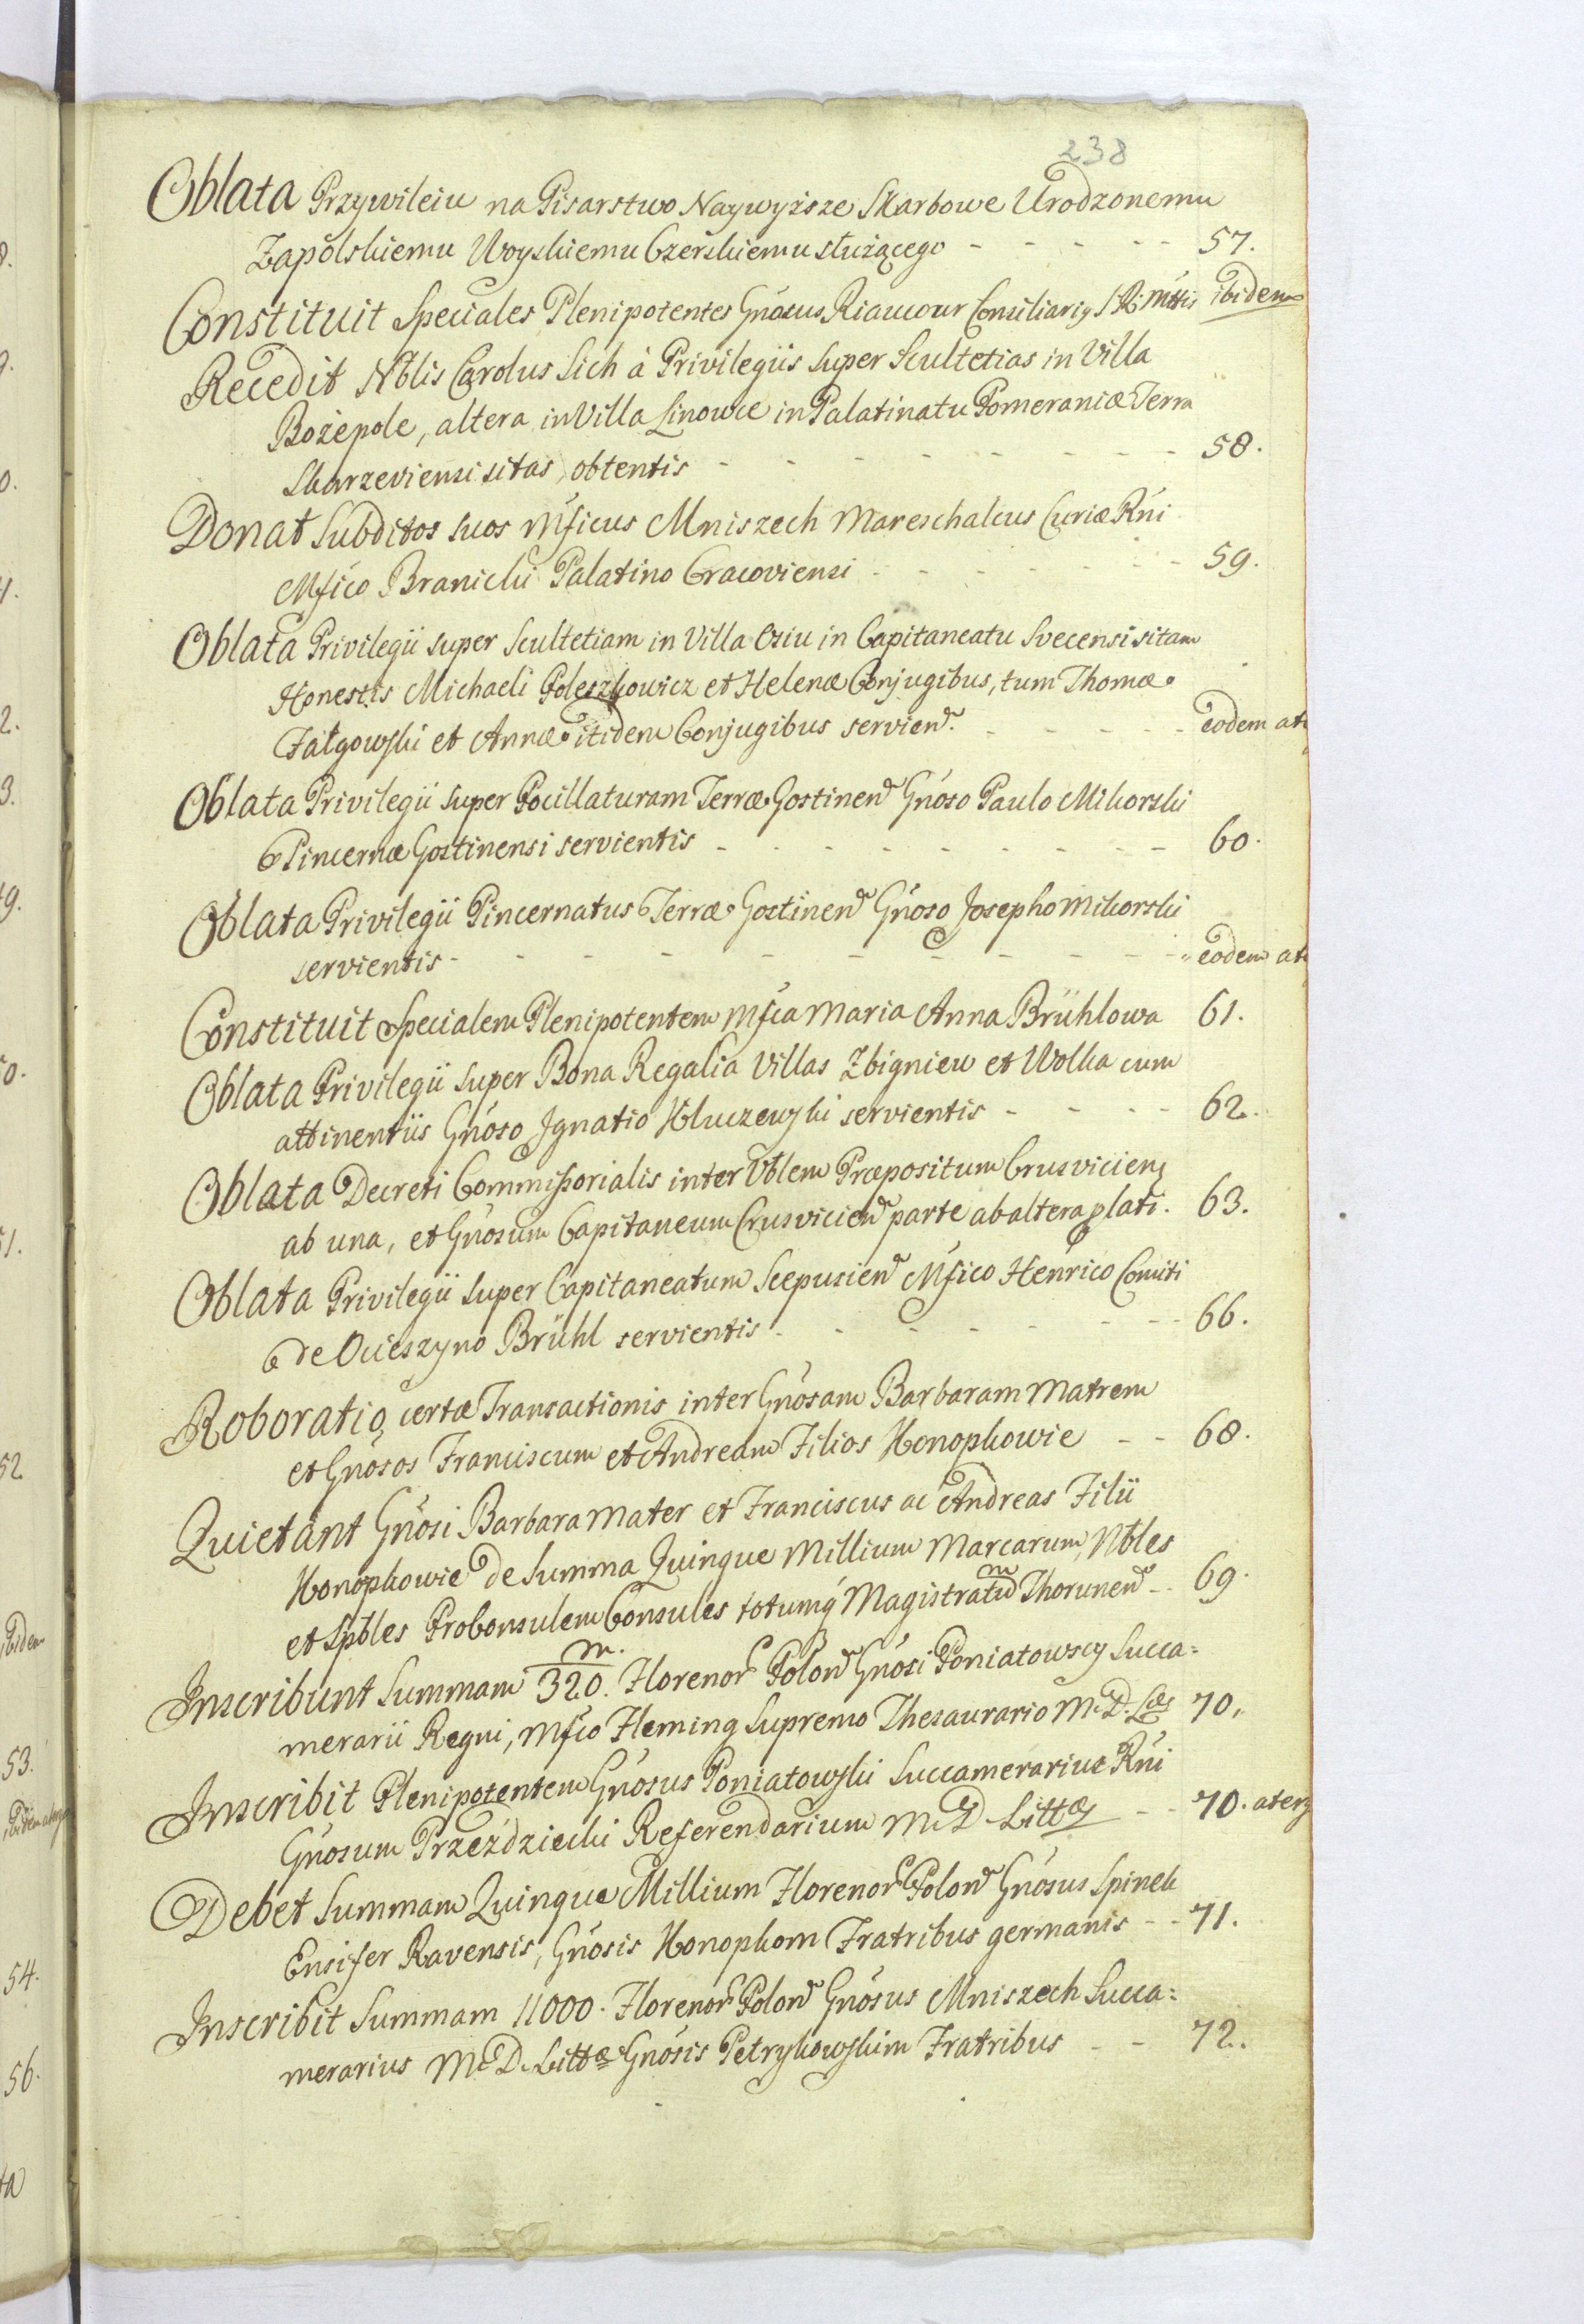 238
Oblata Przywileiu na Pisarstwo Naywyższe Skarbowe Urodzonemu
Zapolskiemu Woyskiemu Czerskiemu służącego - - - - - 57.
Constituit Speciales Plenipotentes Gnosus Riaucour Consiliariꝯ S R Mttis ibidem
Recedit Nblis Carolus Lich à Privilegiis super Scultetias in Villa
Bożepole, altera in Villa Linowce in Palatinatu Pomeraniæ Terra
Skarzeviensi sitas, obtentis - - - - - - - - 58.
Donat Subditos suos Mficus Mniszech Mareschalcus Curiæ Rni
Mfico Branicki Palatino Cracoviensi - - - - - - 59.
Oblata Privilegii super Scultetiam in Villa Osiu in Capitaneatu Svecensi sitam
Honestis Michaeli Poleszkowicz et Helenæ Conjugibus, tum Thomæ
Fałgowski et Annæ itidem Conjugibus servien. - - - - - eodem at
Oblata Privilegii super Pocillaturam Terræ Gostinen Gnoso Paulo Mikorski
Pincernæ Gostinensi servientis - - - - - - - - 60.
Oblata Privilegii Pincernatus Terræ Gostinen Gnoso Josepho Mikorski
servientis - - - - - - - - - eodem at
Constituit Specialem Plenipotentem Mfca Maria Anna Brühlowa 61.
Oblata Privilegii super Bona Regalia Villas Zbigniew et Wolka cum
attinentiis Gnoso Ignatio Kluczewski servientis - - - - 62.
Oblata Decreti Commissorialis inter Vblem Præpositum Crusvicien
ab una, et Gnosum Capitaneum Crusvicien parte ab altera plati. 63.
Oblata Privilegii super Capitaneatum Scepusien Mfico Henrico Comiti
de Ocieszyno Brühl servientis - - - - - - - 66.
Roboratio certæ Transactionis inter Gnosam Barbaram Matrem
et Gnosos Franciscum et Andream Filios Konopkowie - - 68.
Quietant Gnosi Barbara Mater et Franciscus ac Andreas Filii
Konopkowie de Summa Quinque Millium Marcarum, Nbles
et Spbles Proconsulem Consules totumq́ Magistratu͠m Thorunen - - 69.
Inscribunt Summam 320.m Florenor Polon Gnosi Poniatowscy Succa=
merarii Regni, Mfco Fleming Supremo Thesaurario M. D. Læ 70.
Inscribit Plenipotentem Gnosus Poniatowski Succamerarius Rni
Gnosum Przezdziecki Referendarium M. D. Littæ - - 70. aterg
Debet Summam Quinque Millium Florenor Polon Gnosus Spinek
Ensifer Ravensis, Gnosis Konopkom Fratribus germanis - - 71.
Inscribit Summam 11000. Florenor Polon Gnosus Mniszech Succa=
merarius M. D. Littæ Gnosis Petrykowskim Fratribus - - 72.